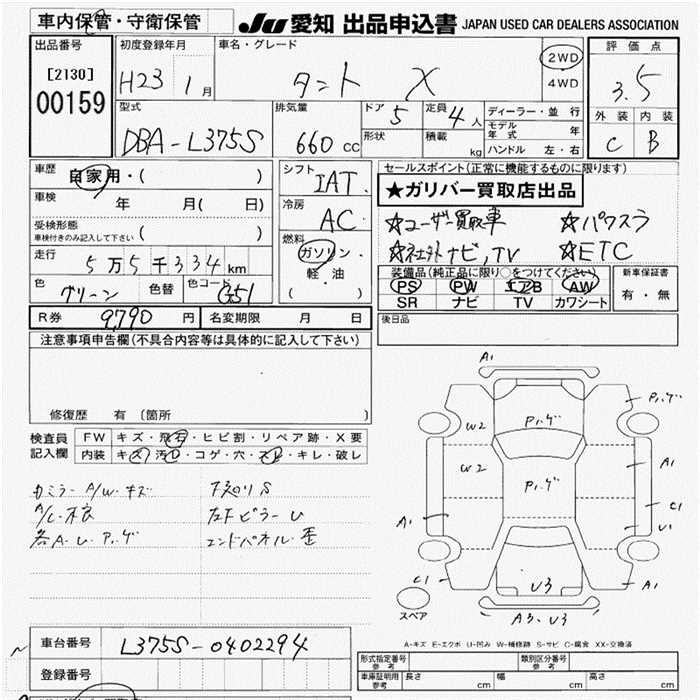 車内保管・守衛保管
JU 愛知 出品申込書 JAPAN USED CAR DEALERS ASSOCIATION
出品番号
[2130]
00159
初度登録年月
H23 1月
車名・グレード
タント X
2WD
4WD
評価点
3.5
外装 内装
C B
型式
DBA-L375S
排気量
660 cc
ドア 5
定員 4人
形状
積載 kg
ディーラー・並行
モデル年式 年
ハンドル 左・右
車歴
自家用・( )
車検 年 月( 日)
受検形態
車検付きのみ記入して下さい ( )
走行 5万5千334km
色 グリーン 色替 色コード G51
シフト
IAT.
冷房
AC
燃料
ガソリン・
軽・油
( )
セールスポイント(正常に機能するものに限ります)
★ガリバー買取店出品
☆ユーザー買取車 ☆パワスラ
☆社外ナビ,TV ☆ETC
装備品(純正品に限り○をつけてください)
PS PW エアB AW
SR ナビ TV カワシート
新車保証書
有・無
R券 9,790 円 名変期限 月 日
後日品
注意事項申告欄(不具合内容等は具体的に記入して下さい)
修復歴 有 (箇所
検査員
記入欄
FW キズ・飛石・ヒビ割・リペア跡・X要
内装 キズ・汚レ・コゲ・穴・スレ・キレ・破レ
カミラー A/W・キズ
各A・U・アハ.ゲ
エンドパネル・歪
A1
アハ.ゲ
W2
アハ.ゲ
W2
アハ.ゲ
A1
C1
A1
U1
C1
U3
A1
スペア
A3・U3
A-キズ E-エクボ U-凹み W-補修跡 S-サビ C-腐食 XX-交換済
車台番号 L375S-0402294
登録番号
形式指定番号
参考
類別区分番号
参考
車庫証明用
参考
長さ cm 幅 cm 高さ cm